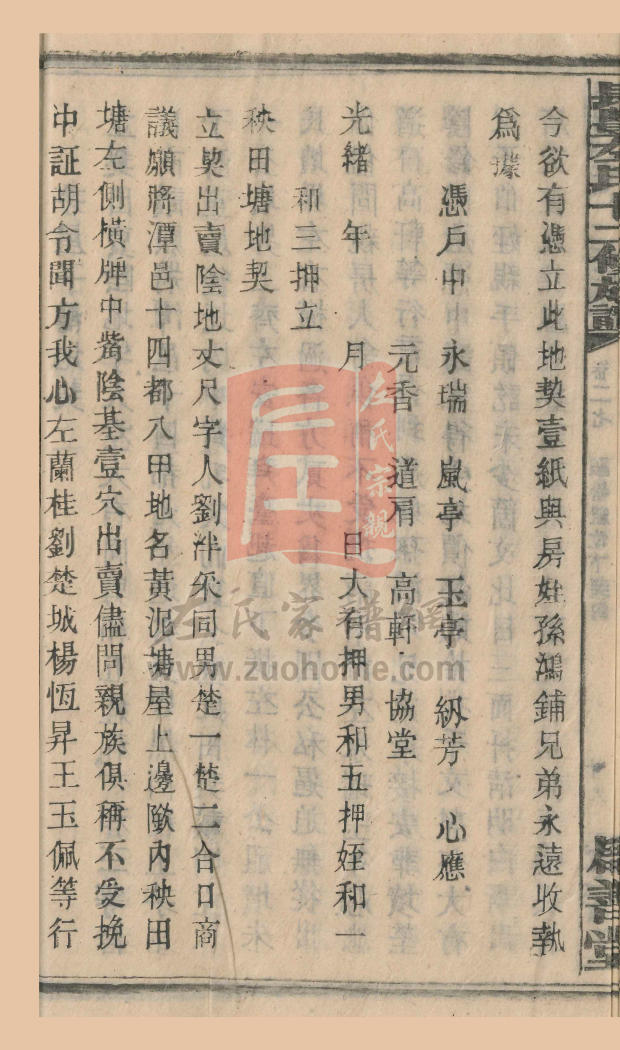 今欲有憑立此地契壹紙與房姪孫鴻鋪兄弟永遠收執
為據
憑戶中 永瑞 嵐亭 玉亭 紉芳 心應
元香 道眉 高軒 協堂
光緒 年 月 日大有押男和五押姪和一
和三押立
秧田塘地契
立契出賣陰地丈尺字人劉泮采同男楚一楚二合口商
議願將潭邑十四都八甲地名黃泥塘屋上邊歐內秧田
塘左側橫牌中觜陰基壹穴出賣儘問親族俱稱不受挽
中証胡令聞方我心左蘭桂劉楚城楊恆昇王玉佩等行
左氏十二修族譜
卷二七
堂
左氏宗親
左氏家譜網
www.zuohome.com